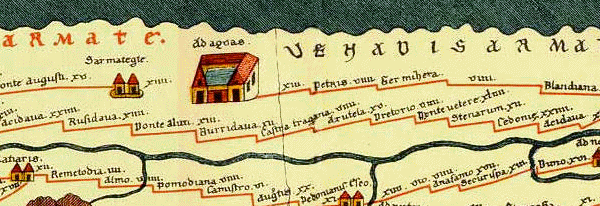 ARMATE.
VEHADIS ARMA
Ad aquas.
Sarmategte.
Ponte augusti. XV.
XIIII.
XIII.
Petris. VIIII.
Germihera.
VIIII.
Blandiana
Acidava. XXIIII.
Rusidava. XIIII.
Ponte aluti. XIII.
Burridava. XII.
Castra tragana. VIIII.
Arutela. XV.
Pretorio. VIIII.
Ponte vetere. XLIIII.
Stenarum. XII.
Cedonie. XXIIII.
Acidava. XV.
Remetodia. VIIII.
Almo. VIIII.
Pomodiana. VIIII.
Camistro. VI.
Augustis XX.
Pedonianis Eseo.
Anasamo XVII.
Securispa. XIII.
Dimo. XVI.